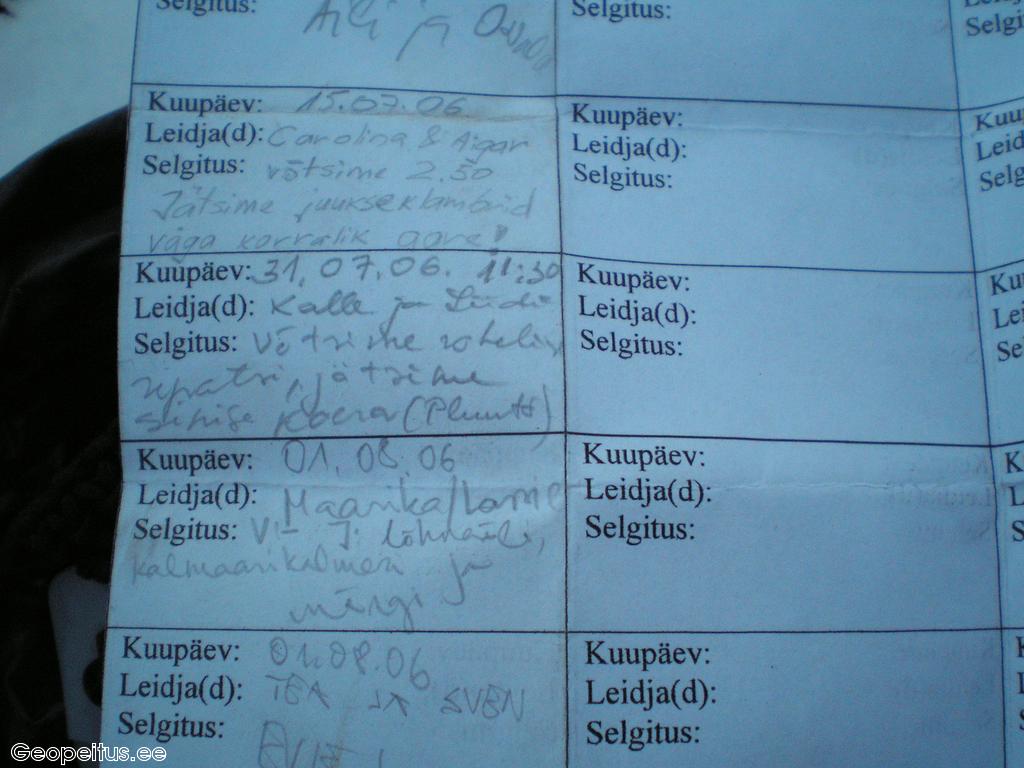 Selgitus: Aili ja
Kuupäev: 15.07.06
Leidja(d): Carolina & Aigar
Selgitus: võtsime 2.50
Jätsime juukseklambrid
väga korralik aare!
Kuupäev: 31.07.06. 11:30
Leidja(d): Kalle ja
Selgitus: Võtsime
jätsime
sinise koera (Pluuto)
Kuupäev: 01.08.06
Leidja(d): Maarika/
Selgitus: V- J: lõhnaõli,
ja
märgi
Kuupäev: 01.08.06
Leidja(d): TEA JA SVEN
Selgitus:
Selgitus:
Kuupäev:
Leidja(d):
Selgitus:
Kuupäev:
Leidja(d):
Selgitus:
Kuupäev:
Leidja(d):
Selgitus:
Kuupäev:
Leidja(d):
Selgitus:
Geopeitus.ee